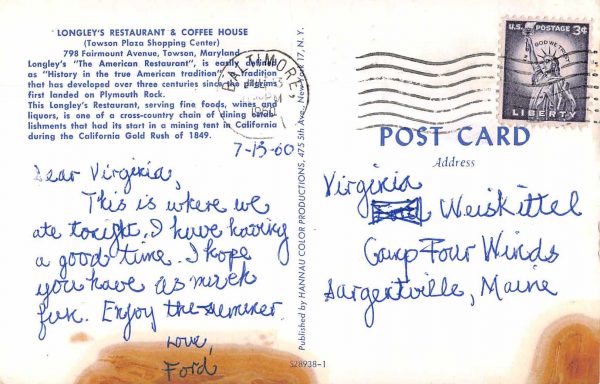 LONGLEY'S RESTAURANT & COFFEE HOUSE
(Towson Plaza Shopping Center)
798 Fairmount Avenue, Towson, Maryland
Longley's "The American Restaurant", is easily defined
as "History in the true American tradition", a tradition
that has developed over three centuries since the pilgrims
first landed on Plymouth Rock.
This Longley's Restaurant, serving fine foods, wines and
liquors, is one of a cross-country chain of dining estab-
lishments that had its start in a mining tent in California
during the California Gold Rush of 1849.
BALTIMORE,
1960
7-13-60
Dear Virginia,
This is where we
ate tonight. I have having
a good time. I hope
you have as much
fun. Enjoy the summer.
Love,
Ford
Published by HANNAU COLOR PRODUCTIONS, 475 5th Ave., New York 17, N. Y.
S28938-1
U.S. POSTAGE 3¢
IN GOD WE TRUST
LIBERTY
POST CARD
Address
Virginia
Weiskittel
Camp Four Winds
Sargentville, Maine